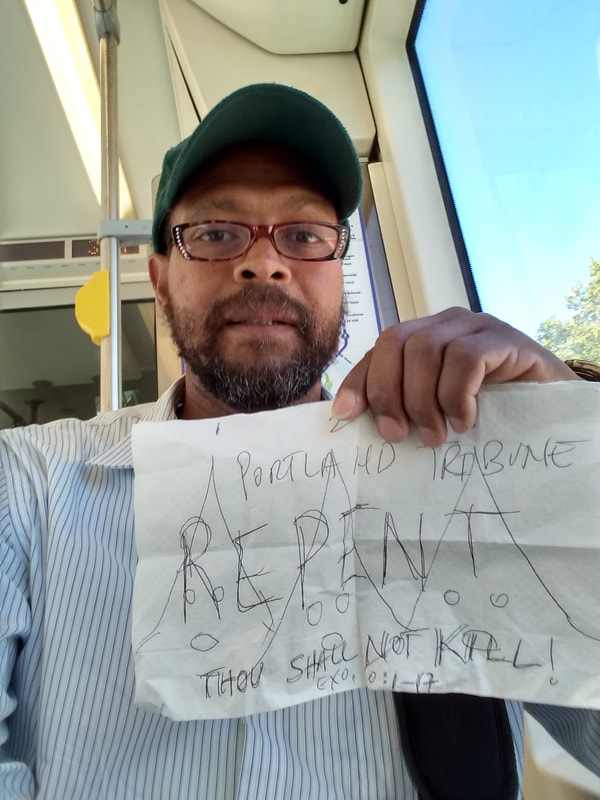 PORTLAND TRIBUNE
REPENT
THOU SHALL NOT KILL!
EXO. 0:1-17